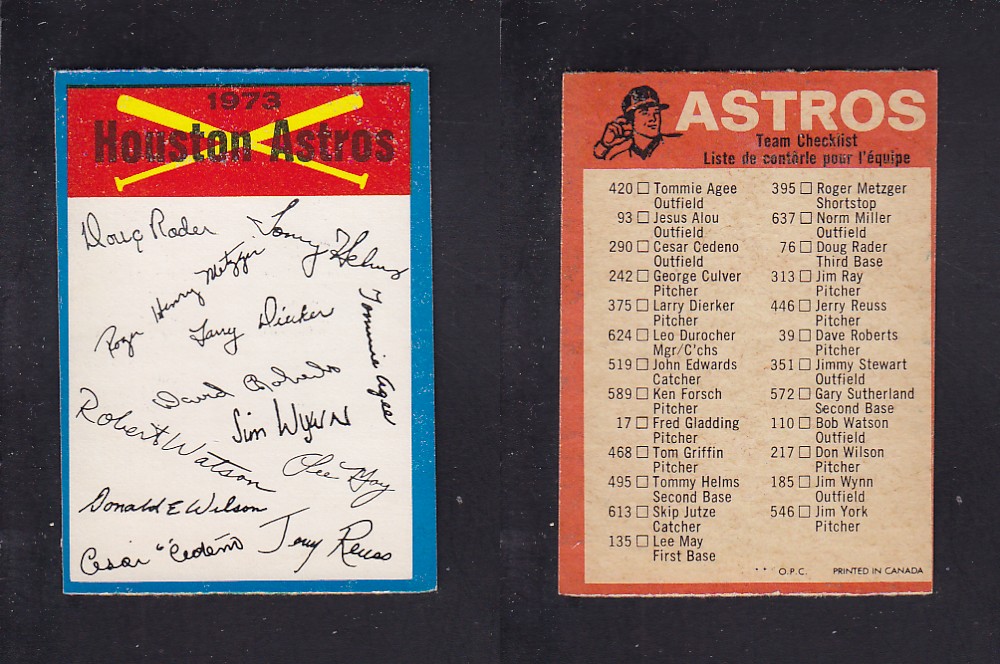 1973
Houston Astros
Doug Rader
Tommy Helms
Roger Henry Metzger
Larry Dierker
Tommie Agee
David Roberts
Robert Watson
Jim Wynn
Lee May
Donald E Wilson
Cesar "Cedeño
Jerry Reuss
ASTROS
Team Checklist
Liste de contôrle pour l'équipe
420 Tommie Agee
Outfield
93 Jesus Alou
Outfield
290 Cesar Cedeno
Outfield
242 George Culver
Pitcher
375 Larry Dierker
Pitcher
624 Leo Durocher
Mgr/C'chs
519 John Edwards
Catcher
589 Ken Forsch
Pitcher
17 Fred Gladding
Pitcher
468 Tom Griffin
Pitcher
495 Tommy Helms
Second Base
613 Skip Jutze
Catcher
135 Lee May
First Base
395 Roger Metzger
Shortstop
637 Norm Miller
Outfield
76 Doug Rader
Third Base
313 Jim Ray
Pitcher
446 Jerry Reuss
Pitcher
39 Dave Roberts
Pitcher
351 Jimmy Stewart
Outfield
572 Gary Sutherland
Second Base
110 Bob Watson
Outfield
217 Don Wilson
Pitcher
185 Jim Wynn
Outfield
546 Jim York
Pitcher
** O.P.C. PRINTED IN CANADA